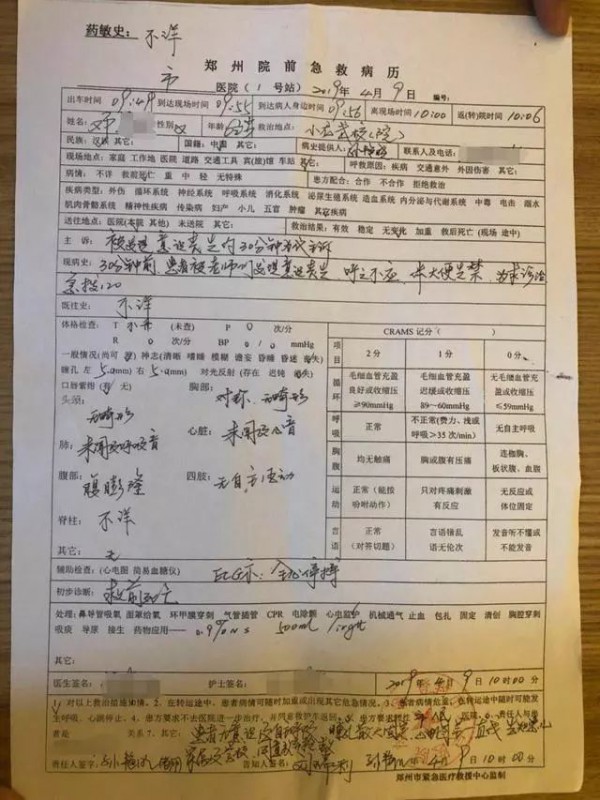 药敏史: 不详
郑州院前急救病历
市 医院(1号站) 2019年4月9日 编号:
出车时间 09:49 到达现场时间 09:55 到达病人身边时间 09:56 离现场时间 10:00 返(转)院时间 10:06
姓名: 邓 性别 女 年龄 救治地点: 小龙武校(院)
民族: 国籍: 中国 其它: 病史提供人: 联系人及电话:
现场地点: 家庭 工作地 医院 道路 交通工具 宾(旅)馆 车站 其它: 呼救原因: 疾病 交通意外 外因伤害 其它:
病情: 不详 救前死亡 重 中 轻 无特殊 患方配合: 合作 不合作 拒绝救治
疾病类型: 外伤 循环系统 神经系统 呼吸系统 消化系统 泌尿生殖系统 造血系统 内分泌与代谢系统 中毒 电击 溺水
肌肉骨骼系统 精神性疾病 传染病 妇产 小儿 五官 肿瘤 其它疾病
送往地点: 医院(本院 其他) 未送院 其它: 救治结果: 有效 稳定 无变化 加重 救后死亡(现场 途中)
主诉: 被发现意识丧失约30分钟为代主诉
现病史: 30分钟前,患者被老师们发现意识丧失 呼之不应 大便失禁 为求诊治
急投120
既往史: 不详
体格检查: T 未升 (未查) P 0 次/分
R 0 次/分 BP 0/0 mmHg
一般情况(尚可 差) 神志(清晰 嗜睡 模糊 谵妄 昏睡 昏迷 丧失)
瞳孔 左 5.0(mm) 右 5.0(mm) 对光反射(存在 迟钝 消失)
口唇紫绀(有 无) 胸部: 对称、无畸形
头颈: 无畸形
肺: 未闻及呼吸音 心脏: 未闻及心音
腹部: 腹膨隆 四肢: 无自主活动
脊柱: 不详
其它: 无
CRAMS记分( )
项目 2分 1分 0分
循环 毛细血管充盈良好或收缩压≥90mmHg 毛细血管充盈迟缓或收缩压89~60mmHg 无毛细血管充盈或收缩压≤59mmHg
呼吸 正常 不正常(费力、浅或呼吸>35次/min) 无自主呼吸
胸腹 均无触痛 胸或腹有压痛 连枷胸、板状腹、血腹
运动 正常(能按吩咐动作) 只对疼痛刺激有反应 无反应或体位固定
言语 正常(对答切题) 言语错乱语无伦次 发音听不懂或不能发音
辅助检查:(心电图 简易血糖仪) ECG示: 全心停搏
初步诊断: 救前死亡
处理: 鼻导管吸氧 面罩给氧 环甲膜穿刺 气管插管 CPR 电除颤 心电监护 机械通气 止血 包扎 固定 清创 胸腔穿刺
吸痰 导尿 接生 药物应用—— 0.9%NS 500ml
其它:
医生签名: 护士签名: 2019年4月9日10时00分
对以上救治措施知情。2、在转运途中,患者病情可随时加重或出现其它危急情况。3、患者病情危重,在转运途中随时可能发生呼吸、心跳停止。4、患方要求不去医院进一步治疗,
关系 7、
责任人签字: 告知人签名: 年4月9日10时00分
郑州市紧急医疗救援中心监制